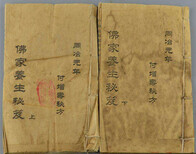 同治元年
付增廣秘方
佛家養生秘笈
上
同治元年
付增廣秘方
佛家養生秘笈
下